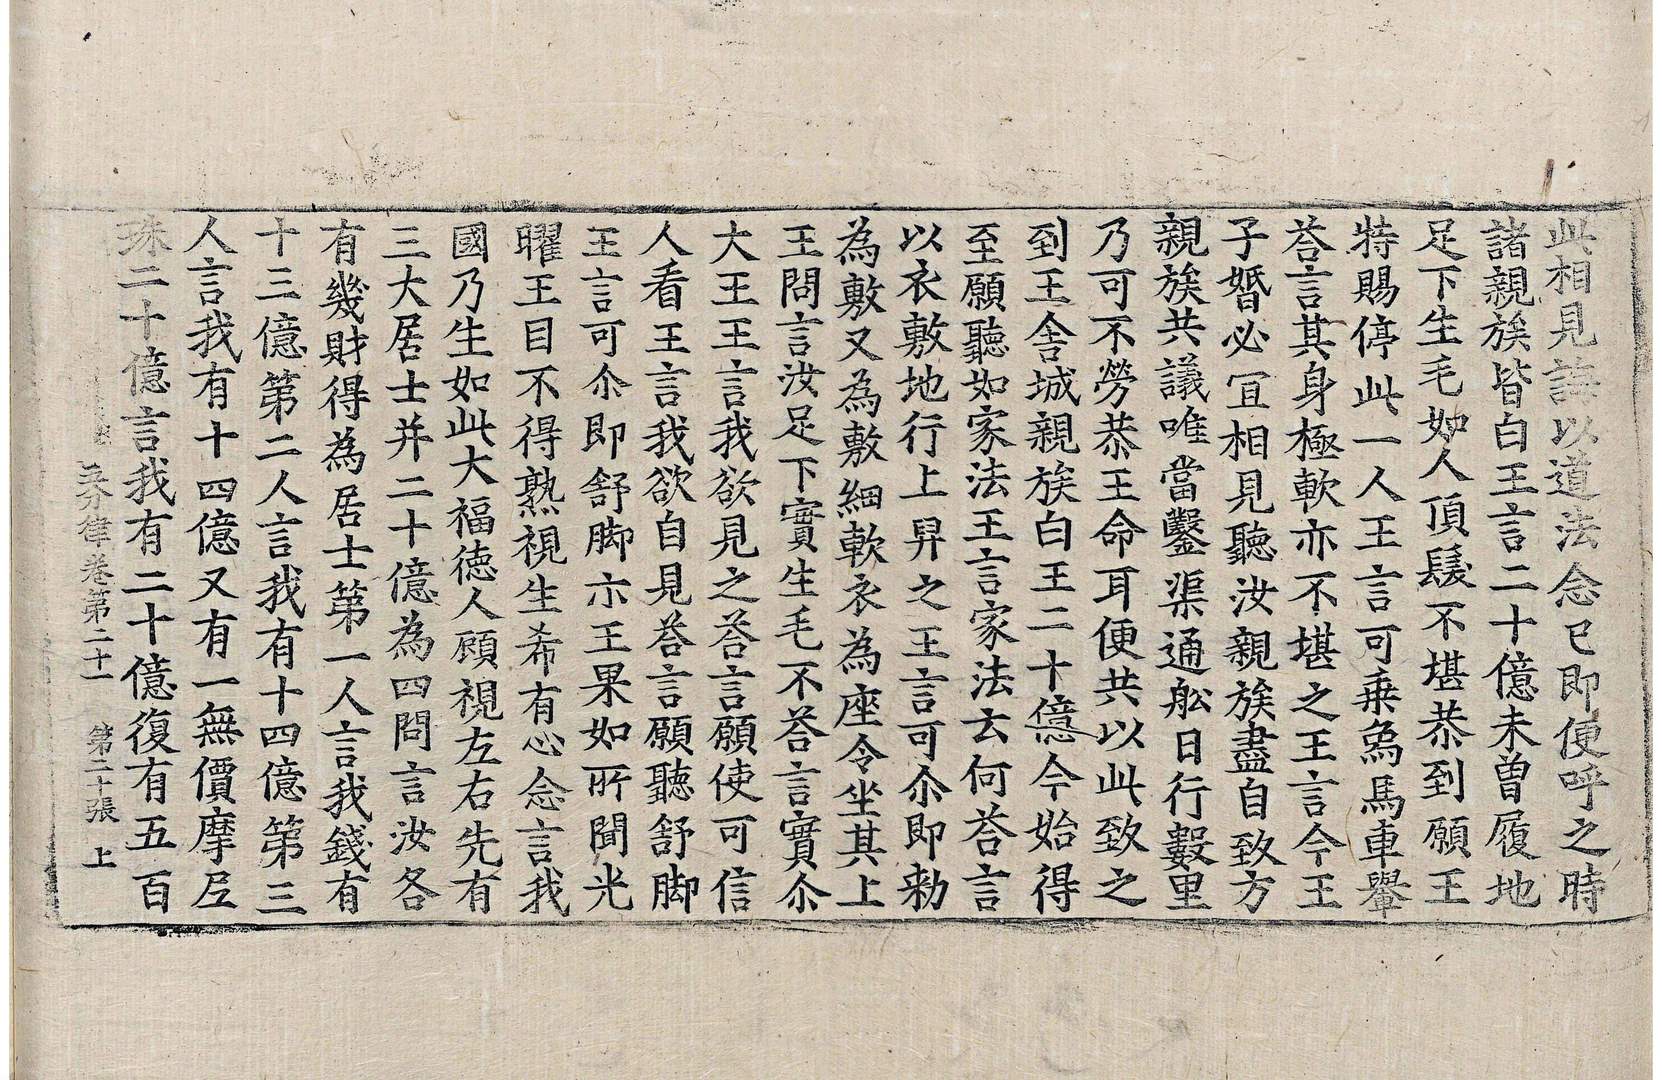 此相見誨以道法念已即便呼之時
諸親族皆白王言二十億未曾履地
足下生毛如人頂䰅不堪恭到願王
特賜停此一人王言可乗象馬車轝
荅言其身極軟亦不堪之王言今王
子婚必冝相見聽汝親族盡自致方
親族共議唯當鑿渠通舩日行數里
乃可不勞恭王命耳便共以此致之
到王舍城親族白王二十億今始得
至願聽如家法王言家法云何荅言
以衣敷地行上昇之王言可尒即勑
為敷又為敷細軟衣為座令坐其上
王問言汝足下實生毛不荅言實尒
大王王言我欲見之荅言願使可信
人看王言我欲自見荅言願聽舒脚
王言可尒即舒脚示王果如所聞光
曜王目不得熟視生希有心念言我
國乃生如此大福德人顧視左右先有
三大居士并二十億為四問言汝各
有幾財得為居士第一人言我錢有
十三億第二人言我有十四億第三
人言我有十四億又有一無價摩𡰱
珠二十億言我有二十億復有五百
五分律卷第二十一 第二十張 上